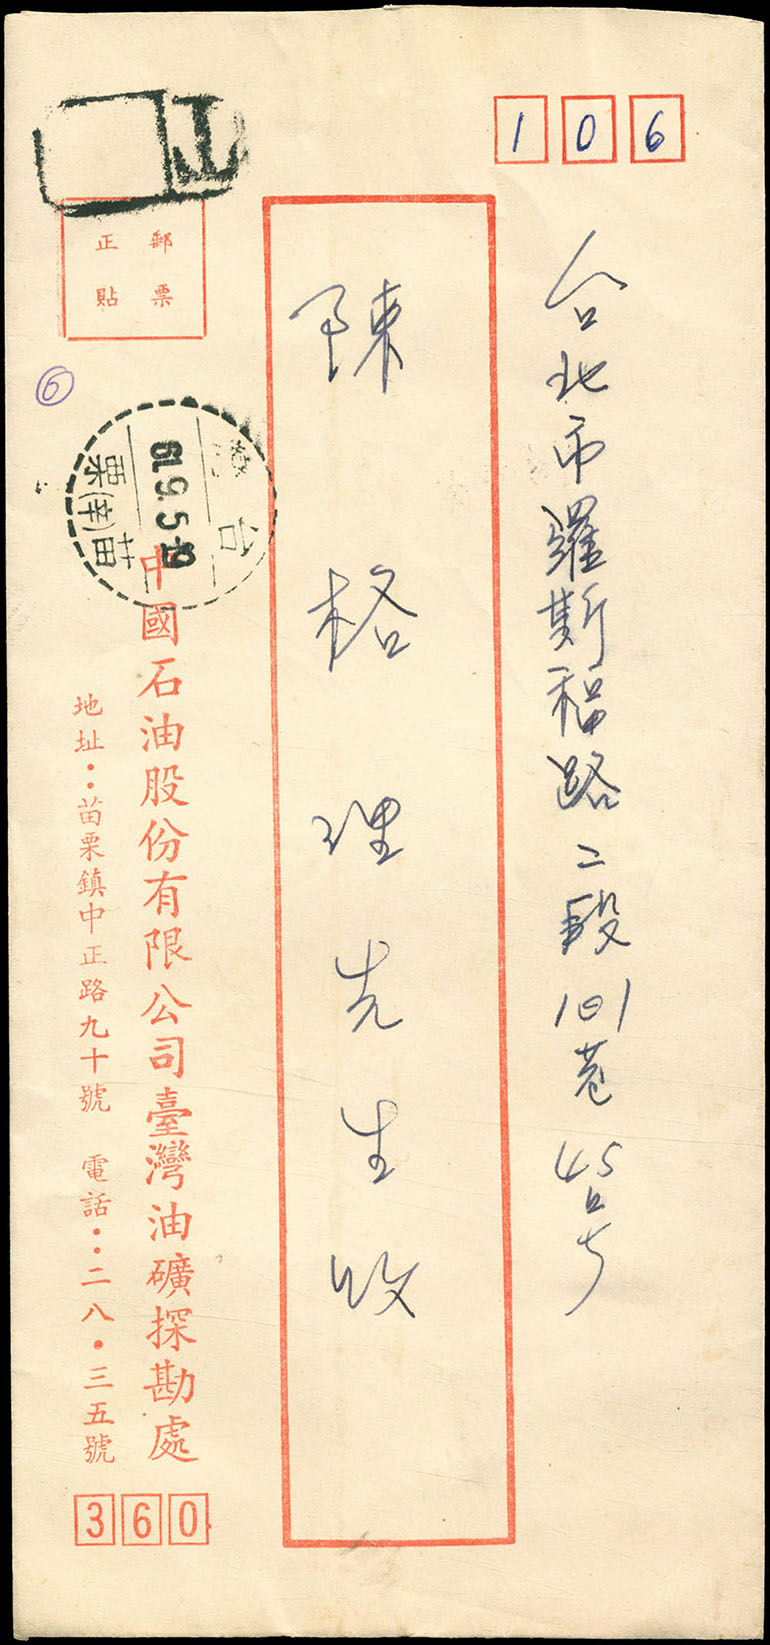 106
台北市羅斯福路二段101巷45号
陳格理先生收
T
郵票
正貼
⑥
臺灣
61.9.5.12
苗栗(南)
中國石油股份有限公司臺灣油礦探勘處
地址：苗栗鎮中正路九十號 電話：二八・三五號
360